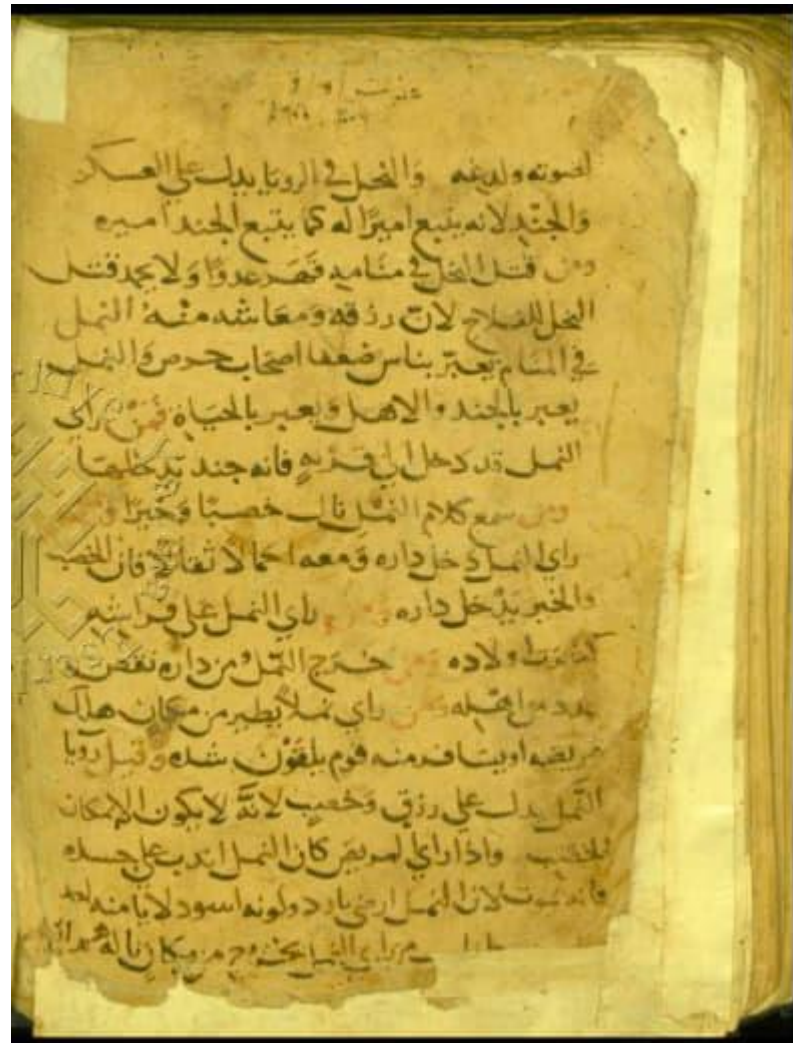 لصوته ولدغه والنحل في الرويا يدل علي العسكر
والجند لانه يتبع اميرًا له كما يتبع الجند اميره
ومن قتل النحل في منامه قهر عدوًا ولا يحمد قتل
النحل للفلاح لان رزقه ومعاشه منه النمل
في المنام يعبر بناس ضعفا اصحاب حرص والنمل
يعبر بالجند والاهل ويعبر بالحياة فمن راي
النمل قد دخل الي قرية فانه جند تدخلها
ومن سمع كلام النمل نال خصبًا وخيرًا ومن
راي النمل دخل داره ومعه احمالا ثقالا فان الخصب
والخير يدخل داره ومن راي النمل علي فراشه
كثرت اولاده ومن خرج النمل من داره نقص
عدد من اهله ومن راي نملا يطير من مكان هلك
مريضه او يسافر منه قوم يلقون شده وقيل رويا
النمل يدل علي رزق وخصب لانه لا يكون الا مكان
الخصب واذا راي المريض كان النمل يدب علي جسده
فانه يموت لان النمل ارضي بارد ولونه اسود لا يامنه احد
راي النمل يخرج من مكان ناله هم